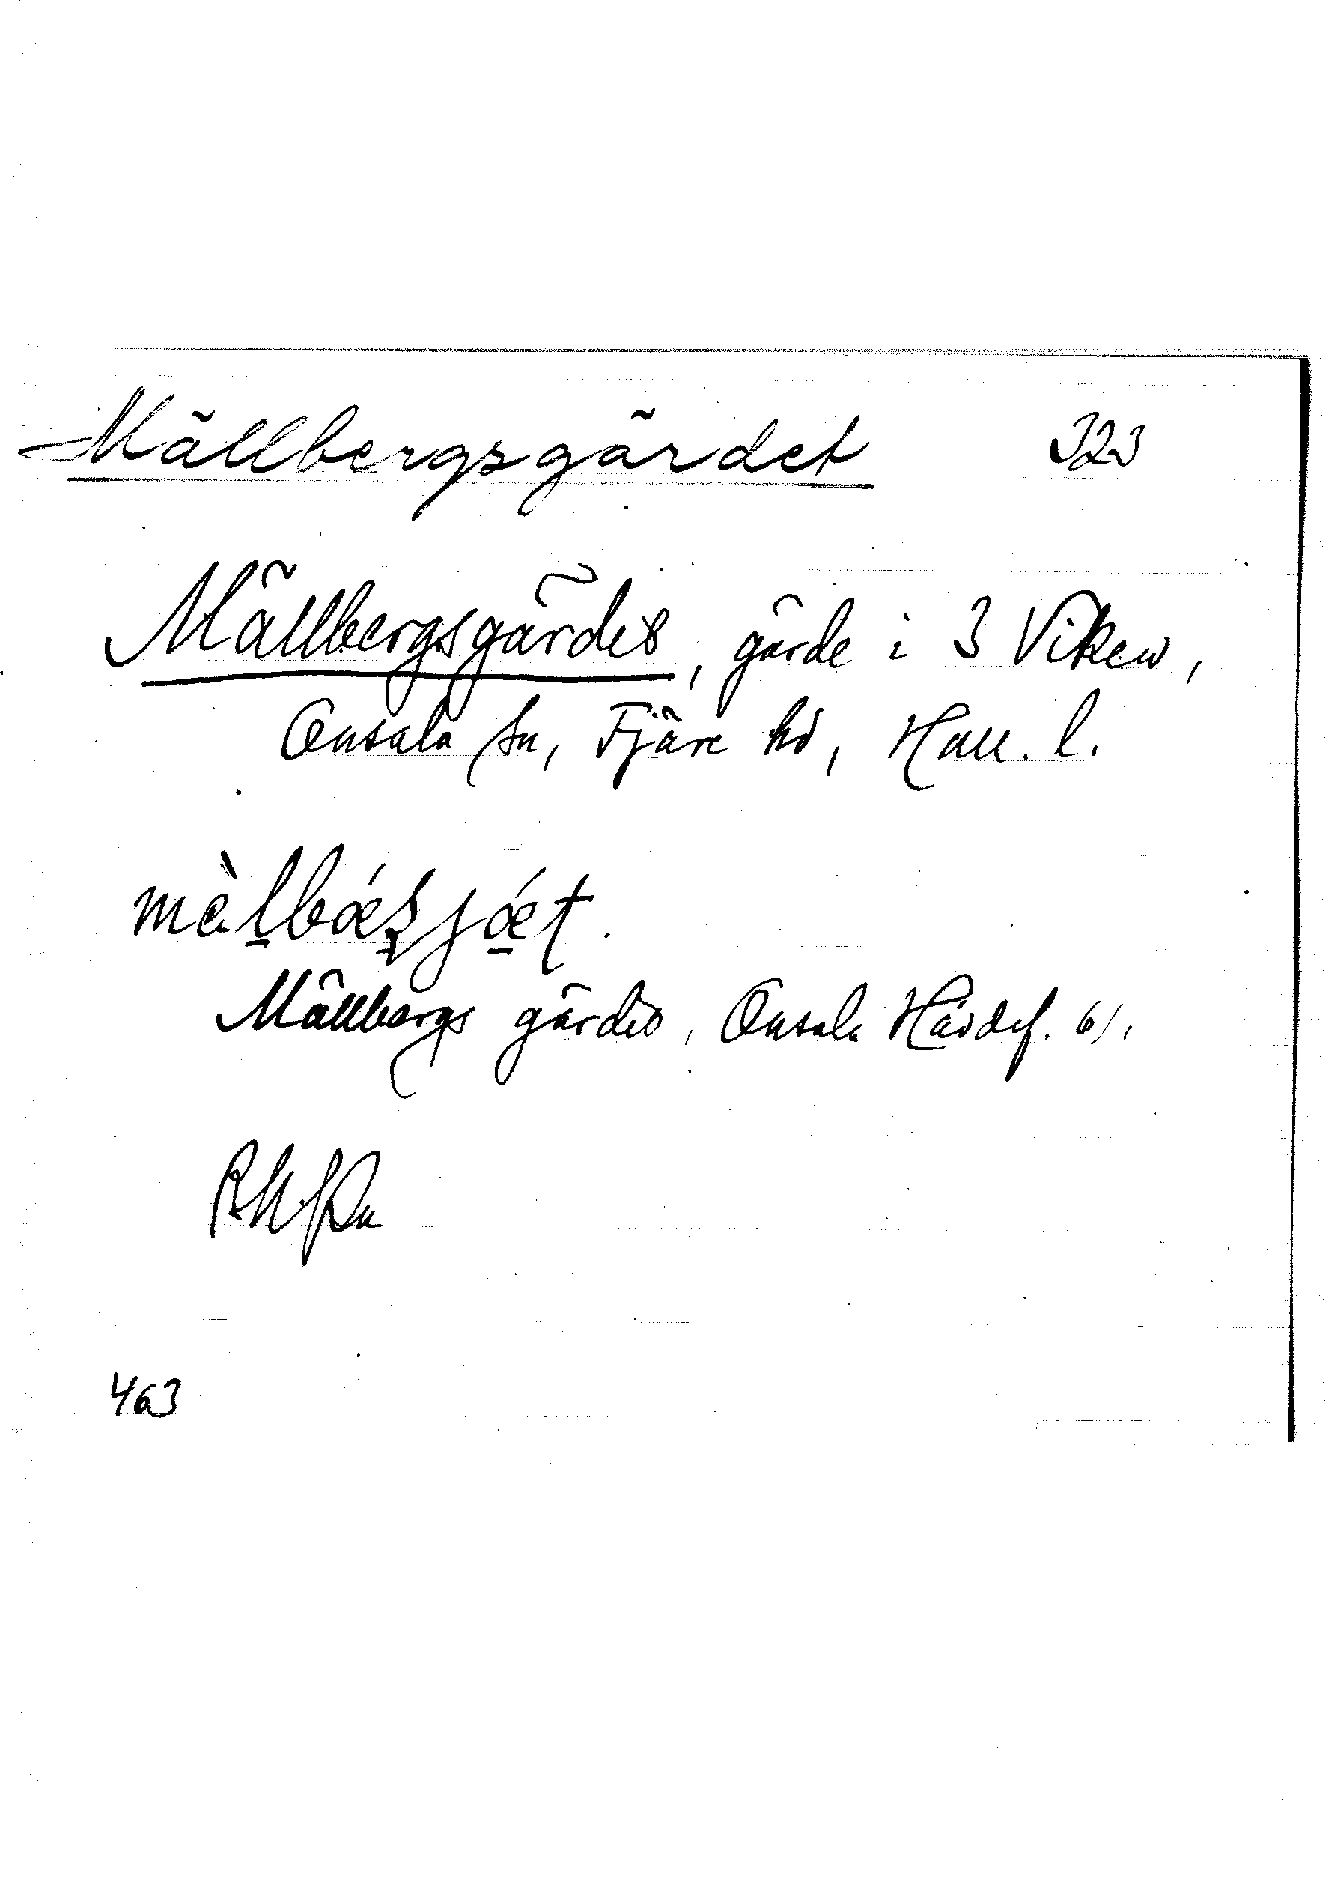 Mällbergsgärdet 323
Mällbergsgärdet, gärde i 3 Viken,
Onsala sn, Fjäre hd, Hall. l.
mὲlbǽsjǽt.
Mällbergs gärdet, Onsala Hävdef. 61.
463